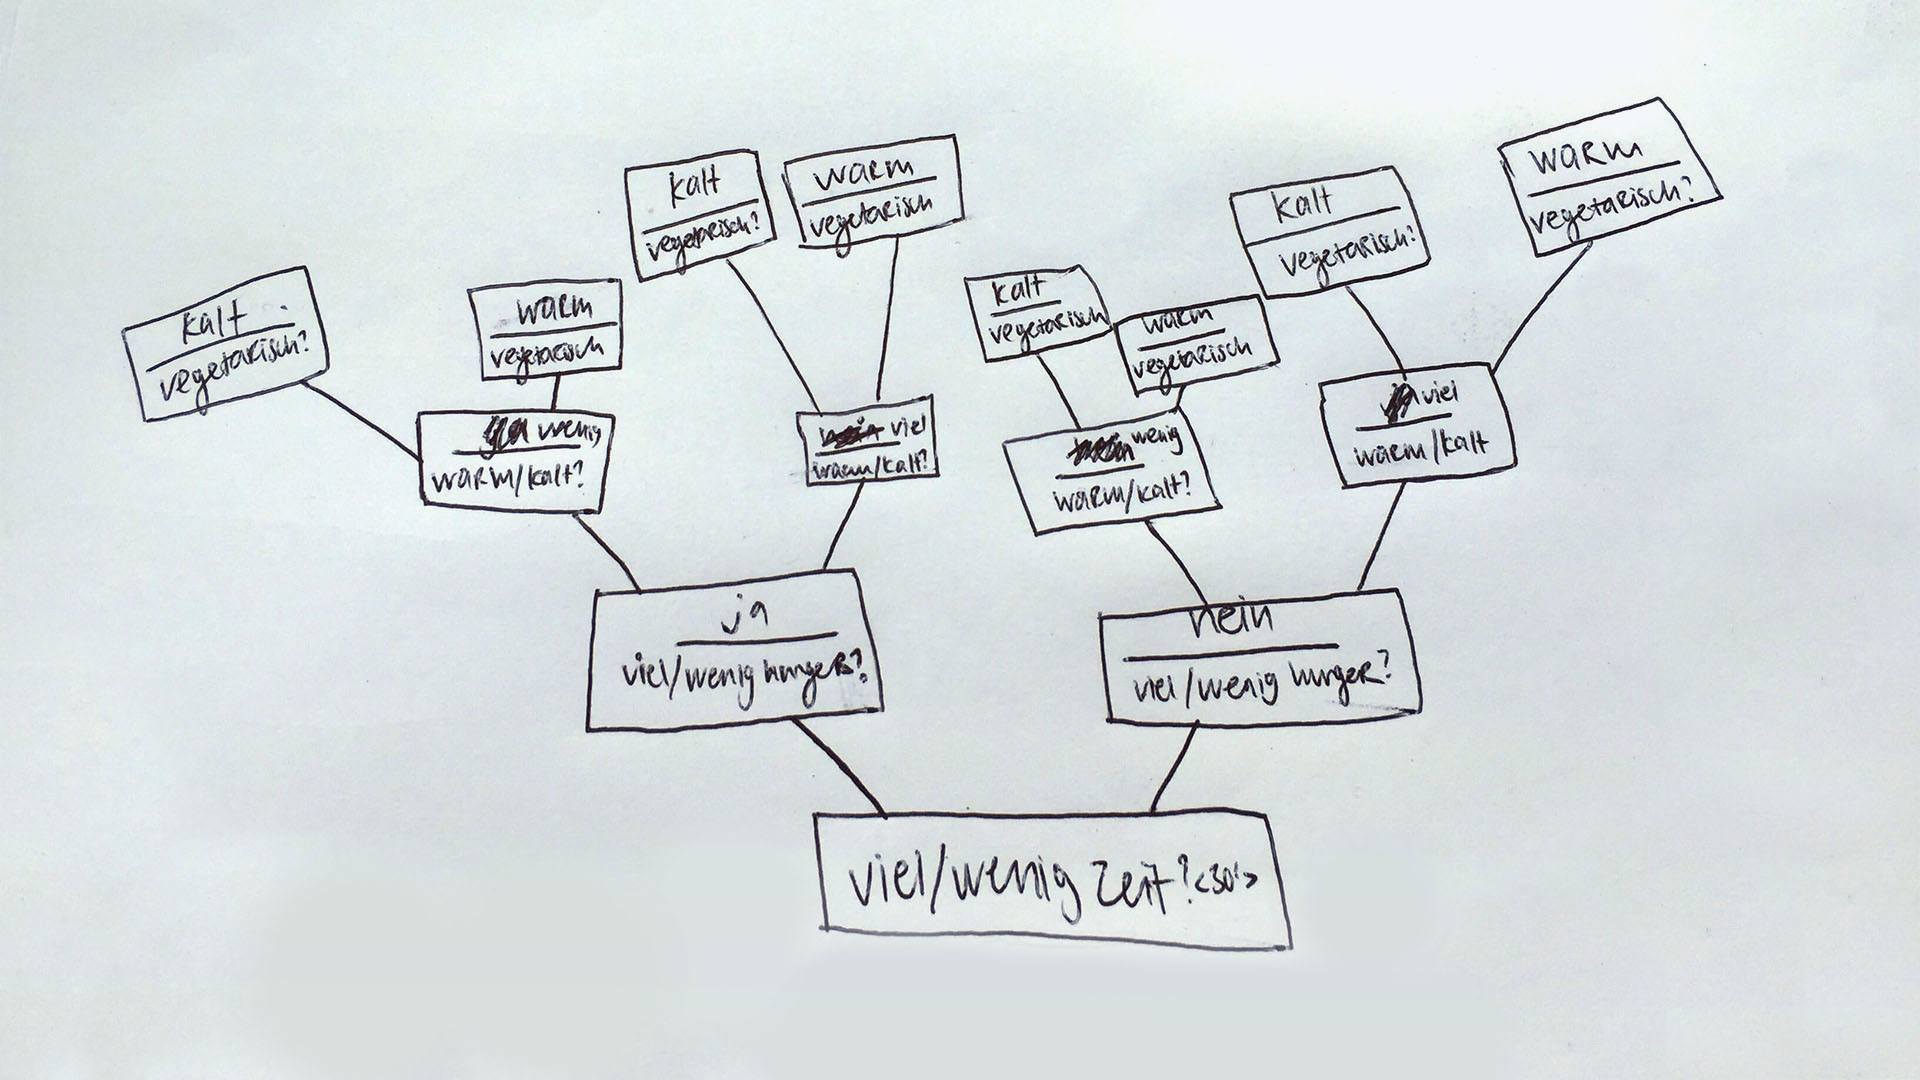 warm
vegetarisch?
kalt
vegetarisch?
warm
vegetarisch
kalt
vegetarisch?
kalt
vegetarisch
warm
vegetarisch
kalt
vegetarisch?
warm
vegetarisch
wenig
warm/kalt?
viel
warm/kalt?
wenig
warm/kalt?
viel
warm/kalt
ja
viel/wenig hunger?
nein
viel/wenig hunger?
viel/wenig Zeit? <30'>